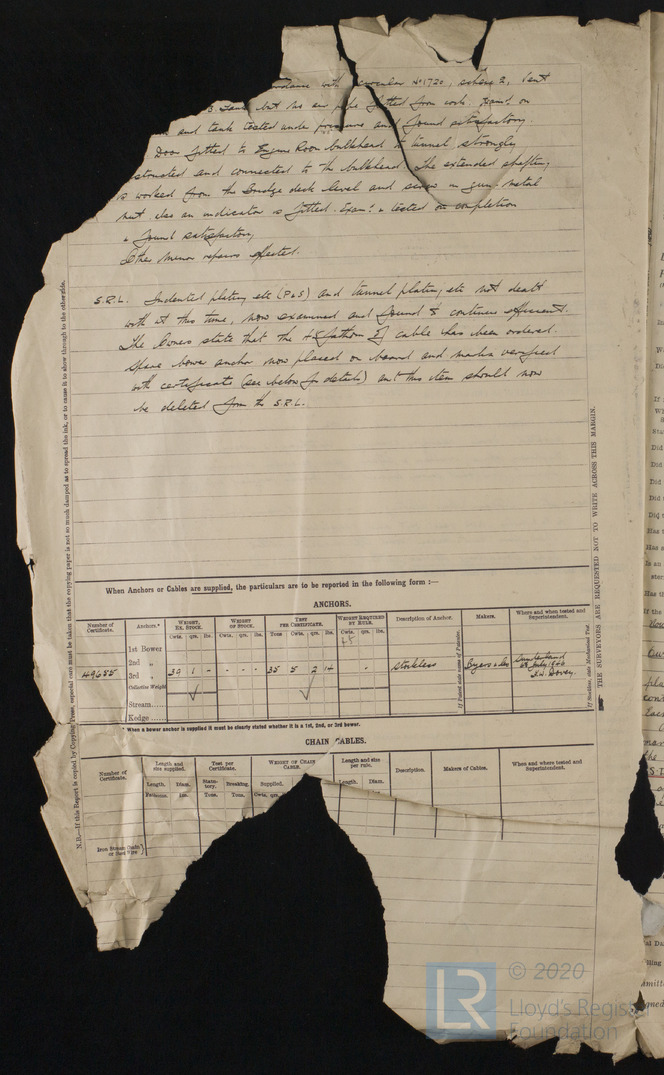 with circular No 1720, scheme 2, vent
but no air pipe fitted from
and tank tested under pressure and found satisfactory.
Door fitted to Engine Room bulkhead tunnel strongly
and connected to the bulkhead. The extended shafting
is worked from the bridge deck level and screw in gun-metal
nut also an indicator is fitted. Exam: & tested on completion
& found satisfactory,
Other minor repairs effected.
S.R.L. Indented plating etc (P&S) and tunnel plating etc not dealt
with at this time, now examined and found to continue efficient.
The Owners state that the fathom of cable has been ordered.
Spare bower anchor now placed on board and marks verified
with certificate (see below for details) and this item should now
be deleted from the S.R.L.
When Anchors or Cables are supplied, the particulars are to be reported in the following form :—
ANCHORS.
Number of Certificate. Anchors.* WEIGHT, EX. STOCK. WEIGHT OF STOCK. TEST PER CERTIFICATE. WEIGHT REQUIRED BY RULE. Description of Anchor. Makers. Where and when tested and Superintendent.
Cwts. qrs. lbs. Cwts. qrs. lbs. Tons Cwts. qrs. lbs. Cwts. qrs. lbs.
1st Bower
2nd „
3rd „ 39 1 - - - - 35 5 2 14 - stockless Byers Sunderland
Collective Weight
Stream
Kedge
* When a bower anchor is supplied it must be clearly stated whether it is a 1st, 2nd, or 3rd bower.
CHAIN CABLES.
Number of Certificate. Length and size supplied. Test per Certificate. WEIGHT OF CHAIN CABLE. Length and size per rule. Description. Makers of Cables. Where and when tested and Superintendent.
Length. Diam. Statutory. Breaking. Supplied. Length. Diam.
Fathoms. Ins. Tons. Tons. Cwts. qrs.
Iron Stream Chain
or Steel Wire
N.B.—If this Report is copied by Copying Press, especial care must be taken that the copying paper is not so much damped as to spread the ink, or to cause it to show through to the other side.
THE SURVEYORS ARE REQUESTED NOT TO WRITE ACROSS THIS MARGIN.
LR © 2020
Lloyd's Register
Foundation